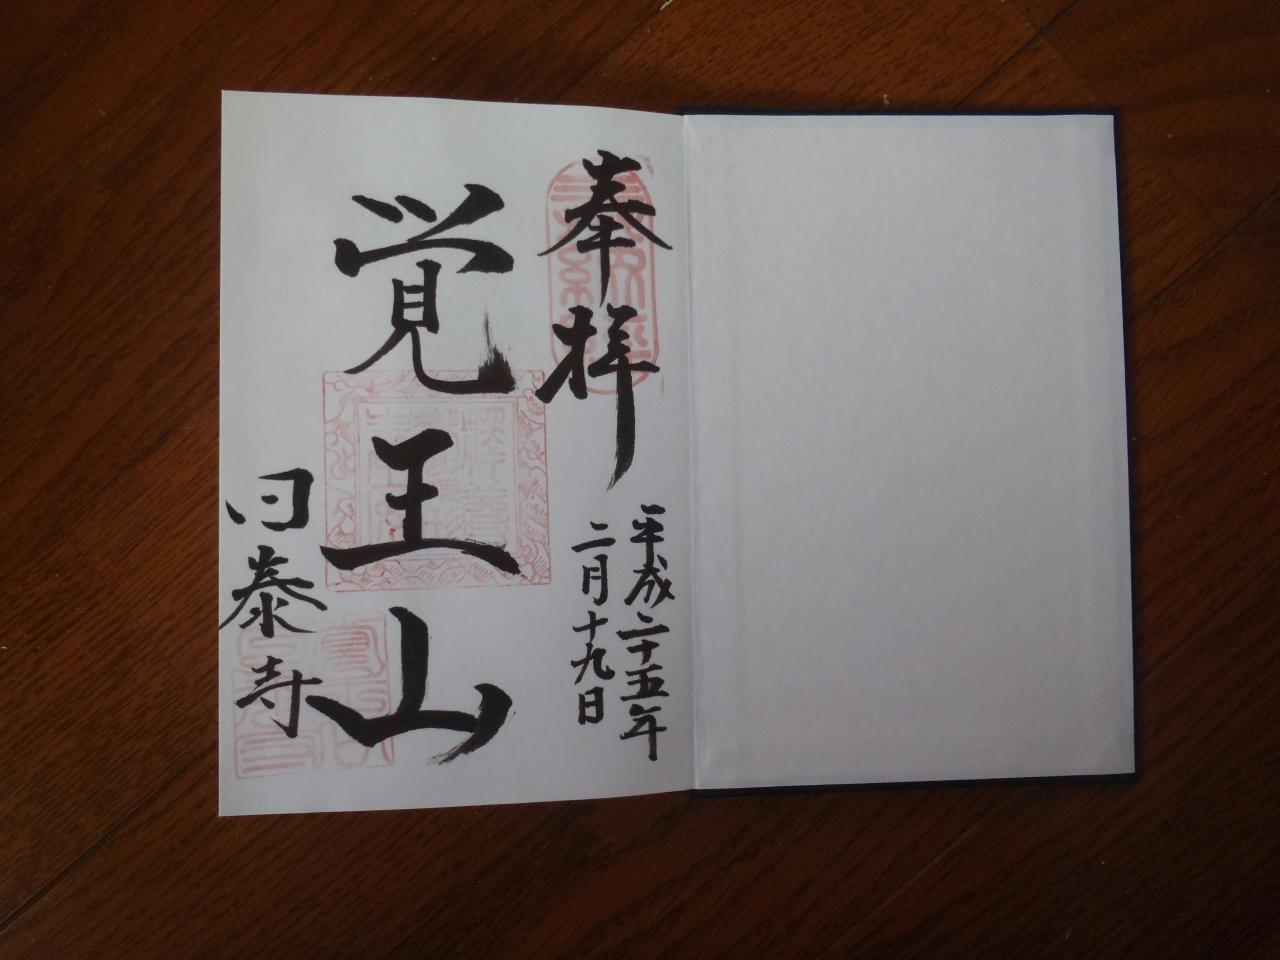 奉拝
平成二十五年
二月十九日
覚王山
日泰寺